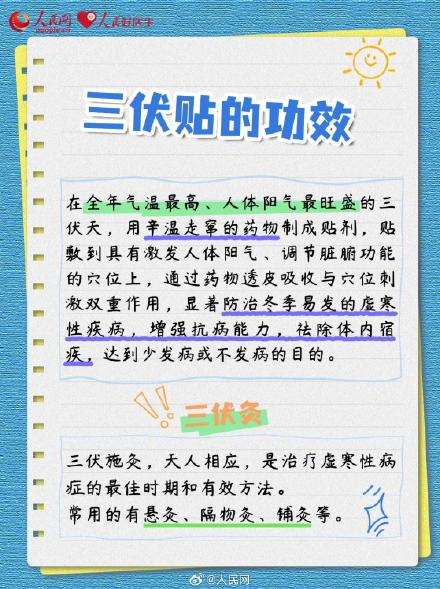 人民网 人民好医生
people.cn
三伏贴的功效
在全年气温最高、人体阳气最旺盛的三
伏天，用辛温走窜的药物制成贴剂，贴
敷到具有激发人体阳气、调节脏腑功能
的穴位上，通过药物透皮吸收与穴位刺
激双重作用，显著防治冬季易发的虚寒
性疾病，增强抗病能力，祛除体内宿
疾，达到少发病或不发病的目的。
三伏灸
三伏施灸，天人相应，是治疗虚寒性病
症的最佳时期和有效方法。
常用的有悬灸、隔物灸、铺灸等。
@人民网